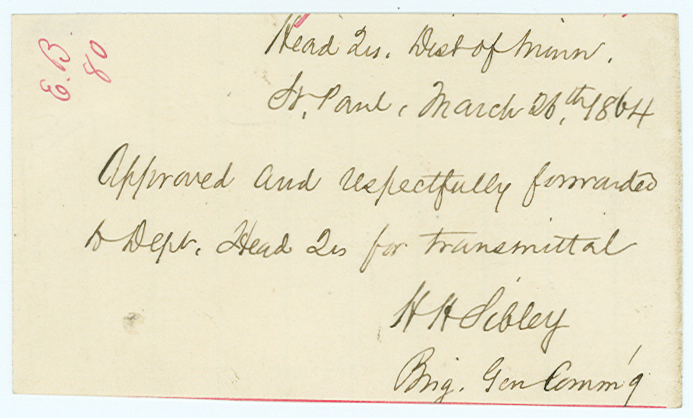 E.B.
80
Head Qrs. Dist of Minn.
St. Paul, March 26th, 1864
Approved and respectfully forwarded
to Dept. Head Qrs for transmittal
H H Sibley
Brig. Gen Comm'g